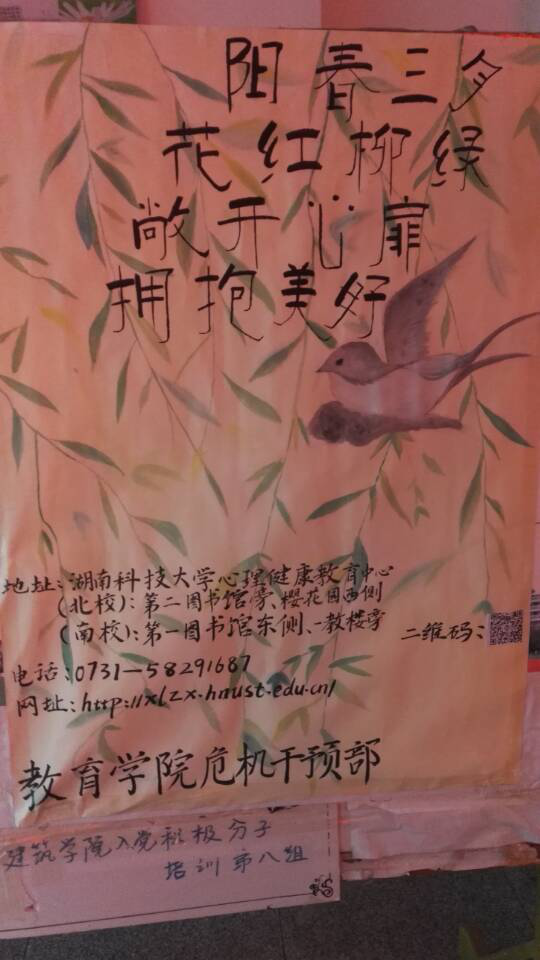 阳春三夕
花红柳绿
敞开心扉
拥抱美好
地址:湖南科技大学心理健康教育中心
(北校):第二图书馆旁、樱花园西侧
(南校):第一图书馆东侧、一教楼旁
二维码:
电话:0731—58291687
网址:http://xlzx.hnust.edu.cn/
教育学院危机干预部
建筑学院入党积极分子
培训第八组